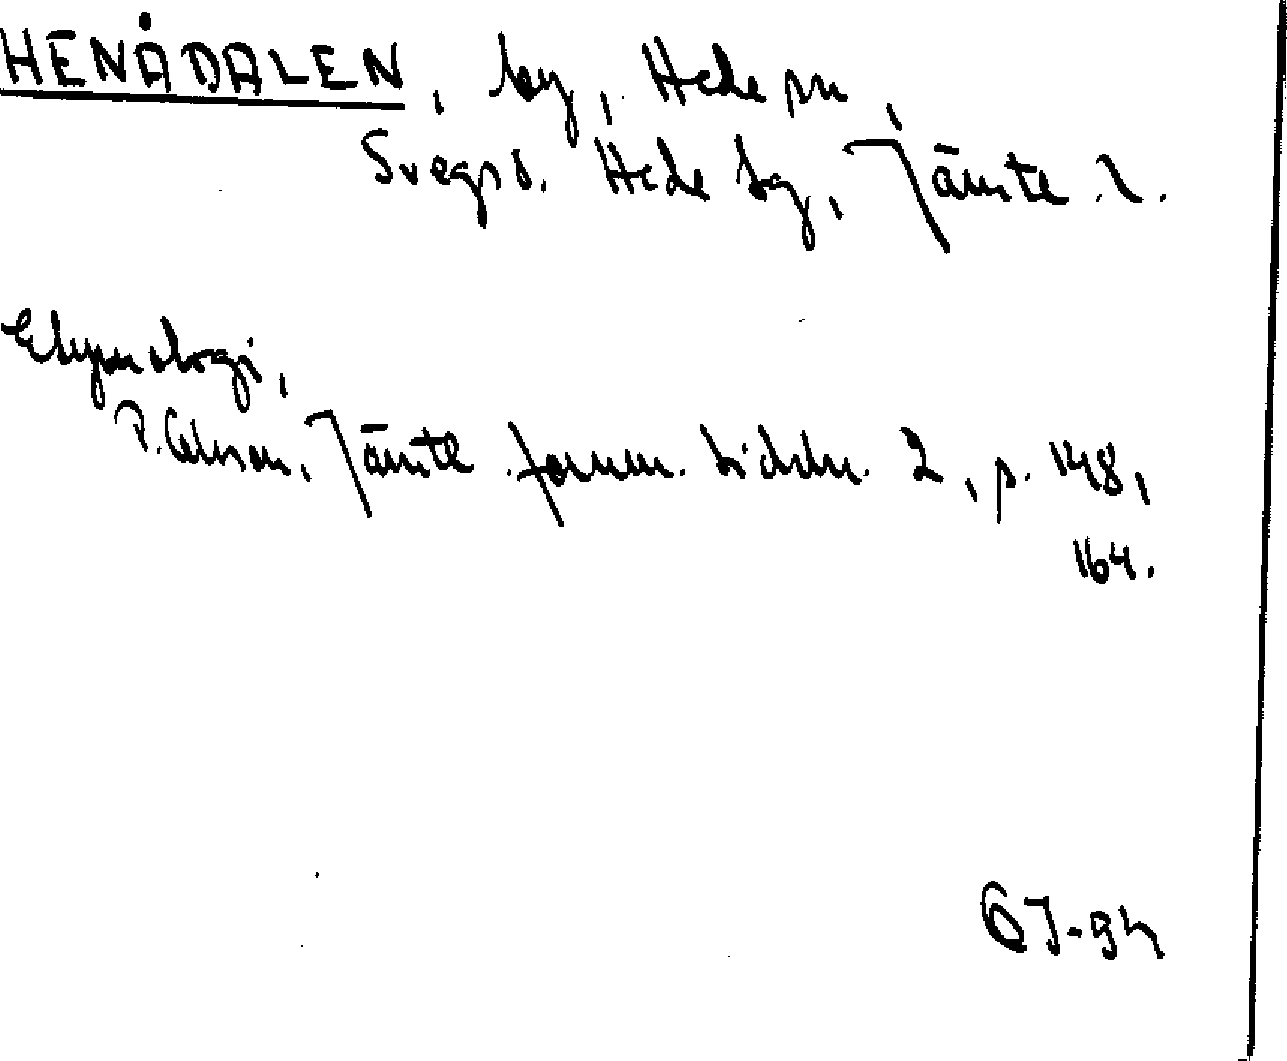 HENÅDALEN, by, Hede sn,
Svegs d. Hede tg, Jämtl. l.
Etymologi,
P. Jämtl. fornm. tidskr. 2, p. 148,
164.